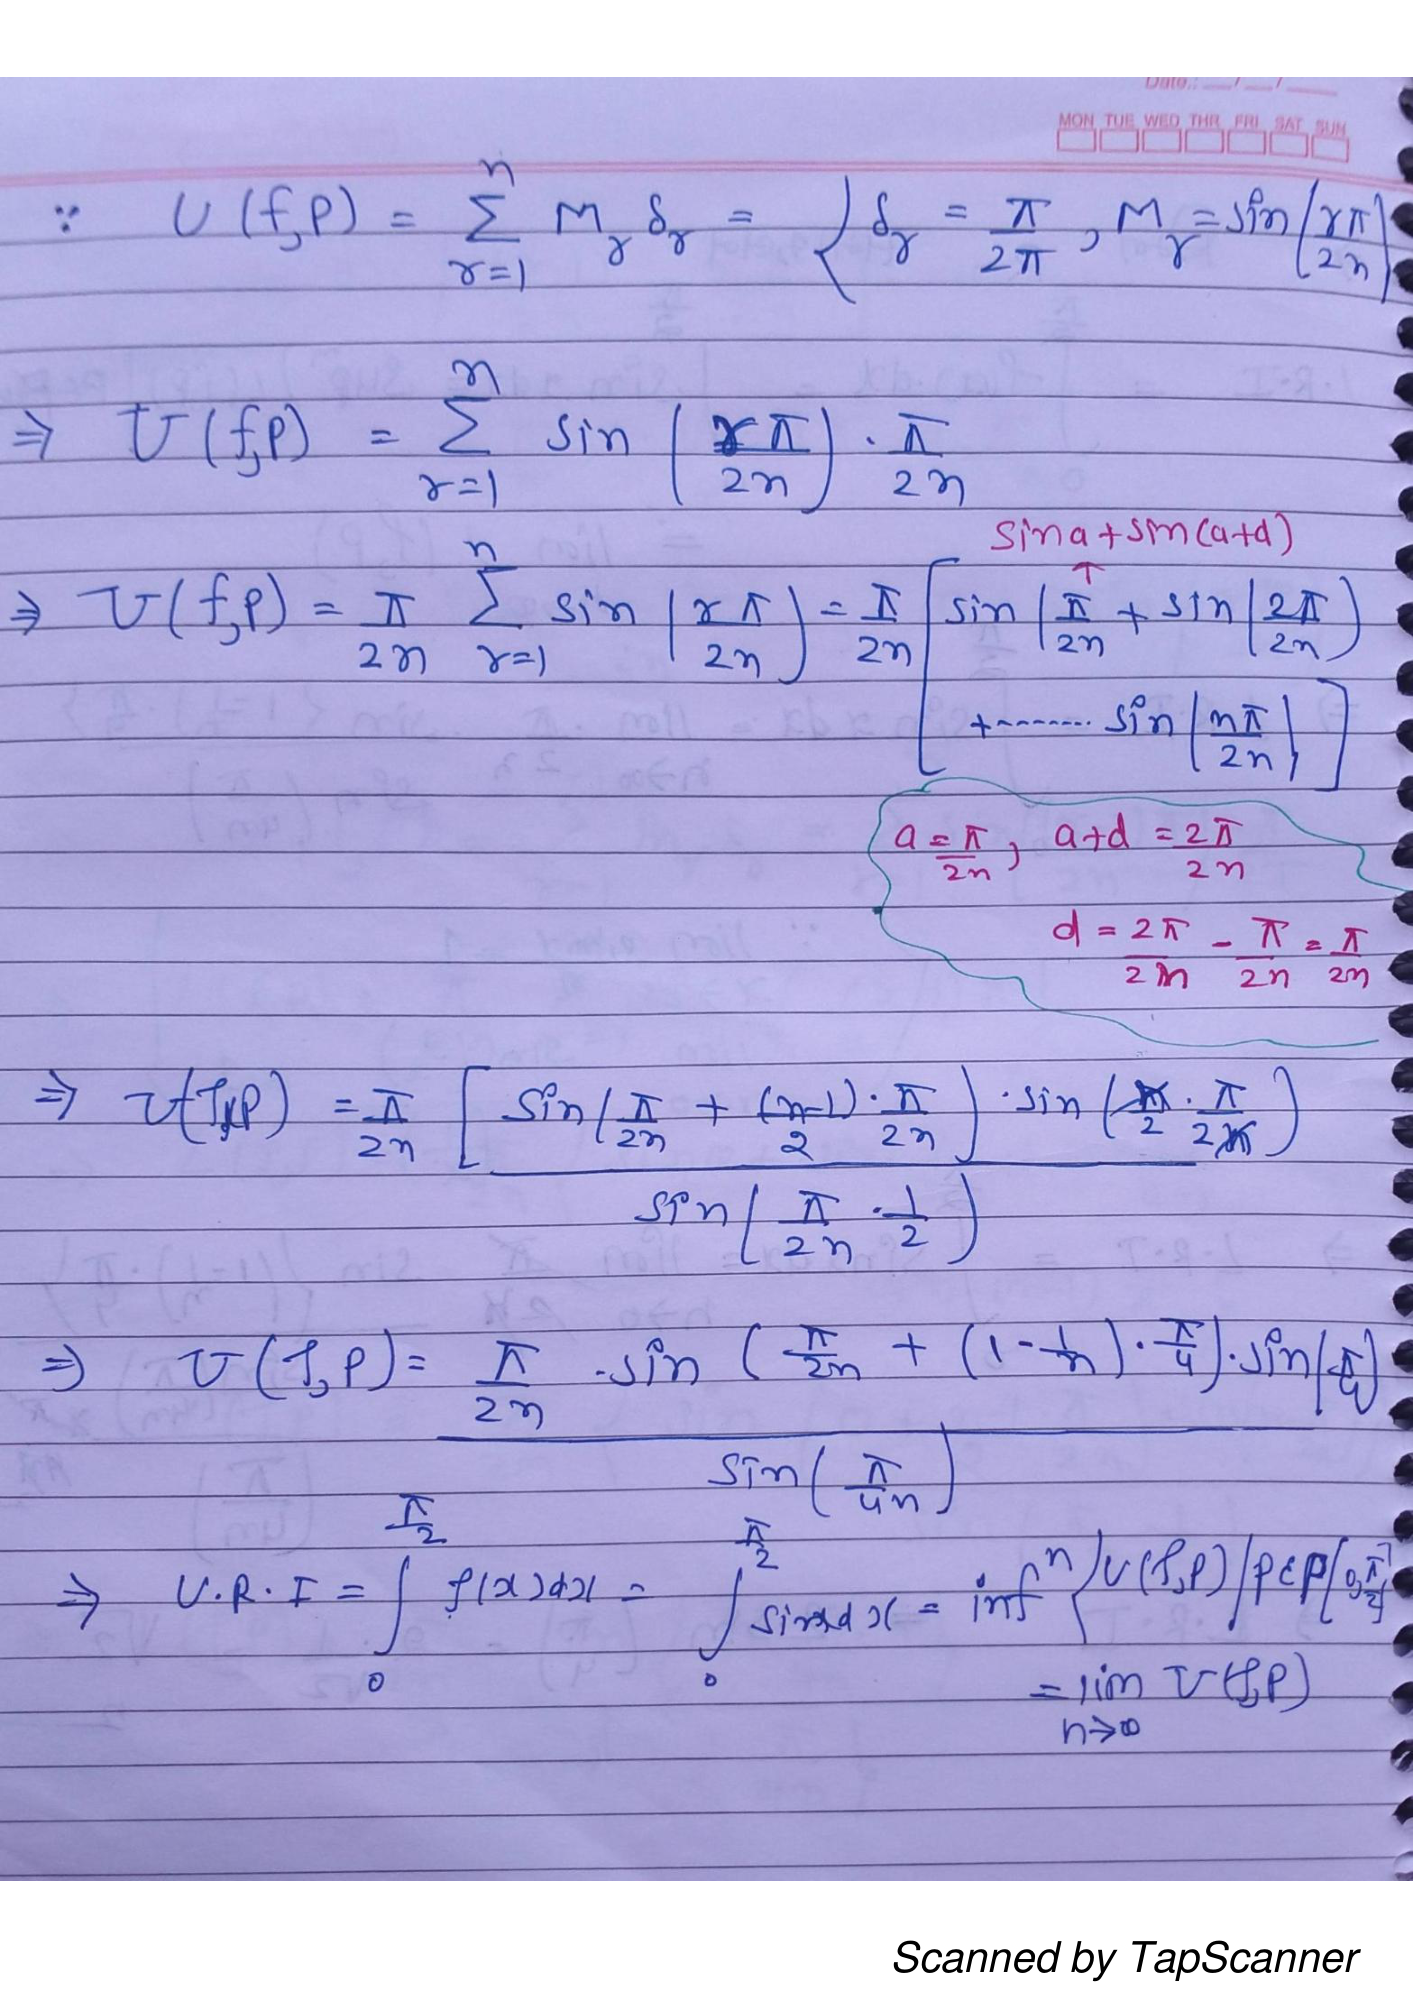 Date.: __/__/__
MON TUE WED THR FRI SAT SUN
∵ U(f,P) = n∑r=1 Mr δr = { δr = π/2π , Mr = sin(rπ/2n)
⇒ U(f,P) = n∑r=1 sin(rπ/2n) · π/2n
sin a + sin(a+d)
↑
⇒ U(f,P) = π/2n n∑r=1 sin(rπ/2n) = π/2n [sin(π/2n + sin(2π/2n)
+------- sin(nπ/2n)]
a = π/2n , a+d = 2π/2n
d = 2π/2n - π/2n = π/2n
⇒ U(f,P) = π/2n [sin(π/2n + (n-1)/2 · π/2n) · sin(n/2 · π/2n)
sin(π/2n · 1/2)
⇒ U(f,P) = π/2n · sin(π/2n + (1 - 1/n) · π/4) · sin(π/4)
sin(π/4n)
⇒ U.R.I = ∫0 π/2 f(x)dx = ∫0 π/2 sinxdx = inf n {U(f,P) / P∈P[0,π/2]
= lim n→∞ U(f,P)
Scanned by TapScanner